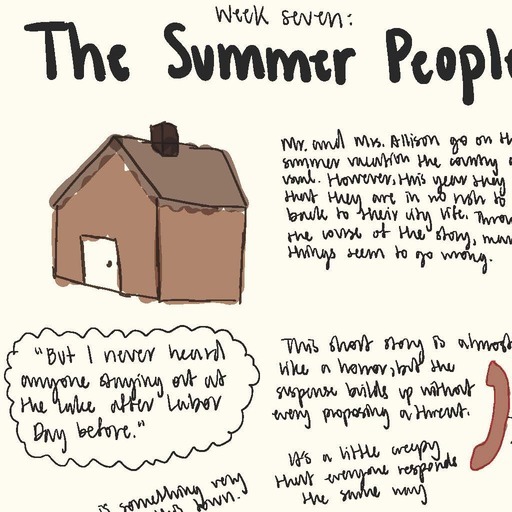 Week seven:
The Summer People
Mr. and Mrs. Allison go on th
summer vacation the country
vani. However, this year they
that they are in no rush to
back to their city life. Throu
the course of the story, man
things seem to go wrong.
"But I never heard
anyone staying out at
the lake after Labor
Day before."
This short story is almost
like a horror, but the
suspense builds up without
every proposing a threat.
It's a little creepy
that everyone responds
the same way
is something very
this town.